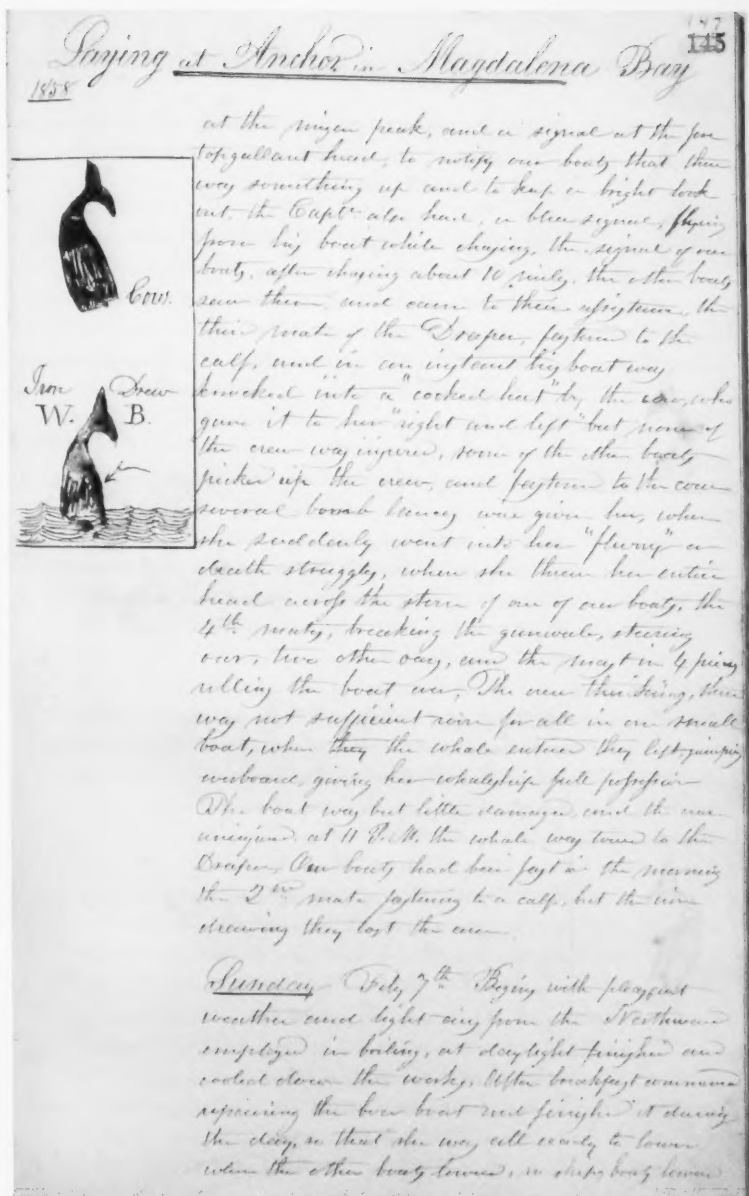 147
145
Laying at Anchor in Magdalena Bay
1858
at the mizen peak, and a signal at the fore
topgallant head, to notify our boats that there
was something up and to keep a bright look
out, the Capt. also had, a blue signal, flying
from his boat while chasing, the signal of our
boats, after chasing about 10 miles, the other boats
saw them, and came to their assistance, the
third mate of the Draper, fastened to the
calf, and in an instant his boat was
knocked into a "cocked hat" by the cow, who
gave it to her "right and left" but none of
the crew was injured, some of the other boats
picked up the crew, and fastened to the cow
several bomb lances was given her, when
she suddenly went into her "flurry" or
death struggles, when she threw her entire
head across the stern of one of our boats, the
4th mates, breaking the gunwale, steering
oar, two other oars, and the mast in 4 pieces
rolling the boat over, The crew thinking, there
was not sufficient room for all in one small
boat, when they the whale entered they left jumping
overboard, giving her whaleship full possession
The boat was but little damaged, and the crew
uninjured. at 11 P.M. the whale was towed to the
Draper, Our boats had been fast in the morning
the 2nd mate fastening to a calf, but the iron
drawing they lost the cow
Cow.
Iron Drew
W. B.
Sunday Feby 7th Begins with pleasant
weather and light airs from the Northward
employed in boiling, at daylight finished and
cooled down the works, After breakfast commenced
repairing the bow boat and finished it during
the day, so that she was all ready to lower
when the other boats lowered, ships boats lowered